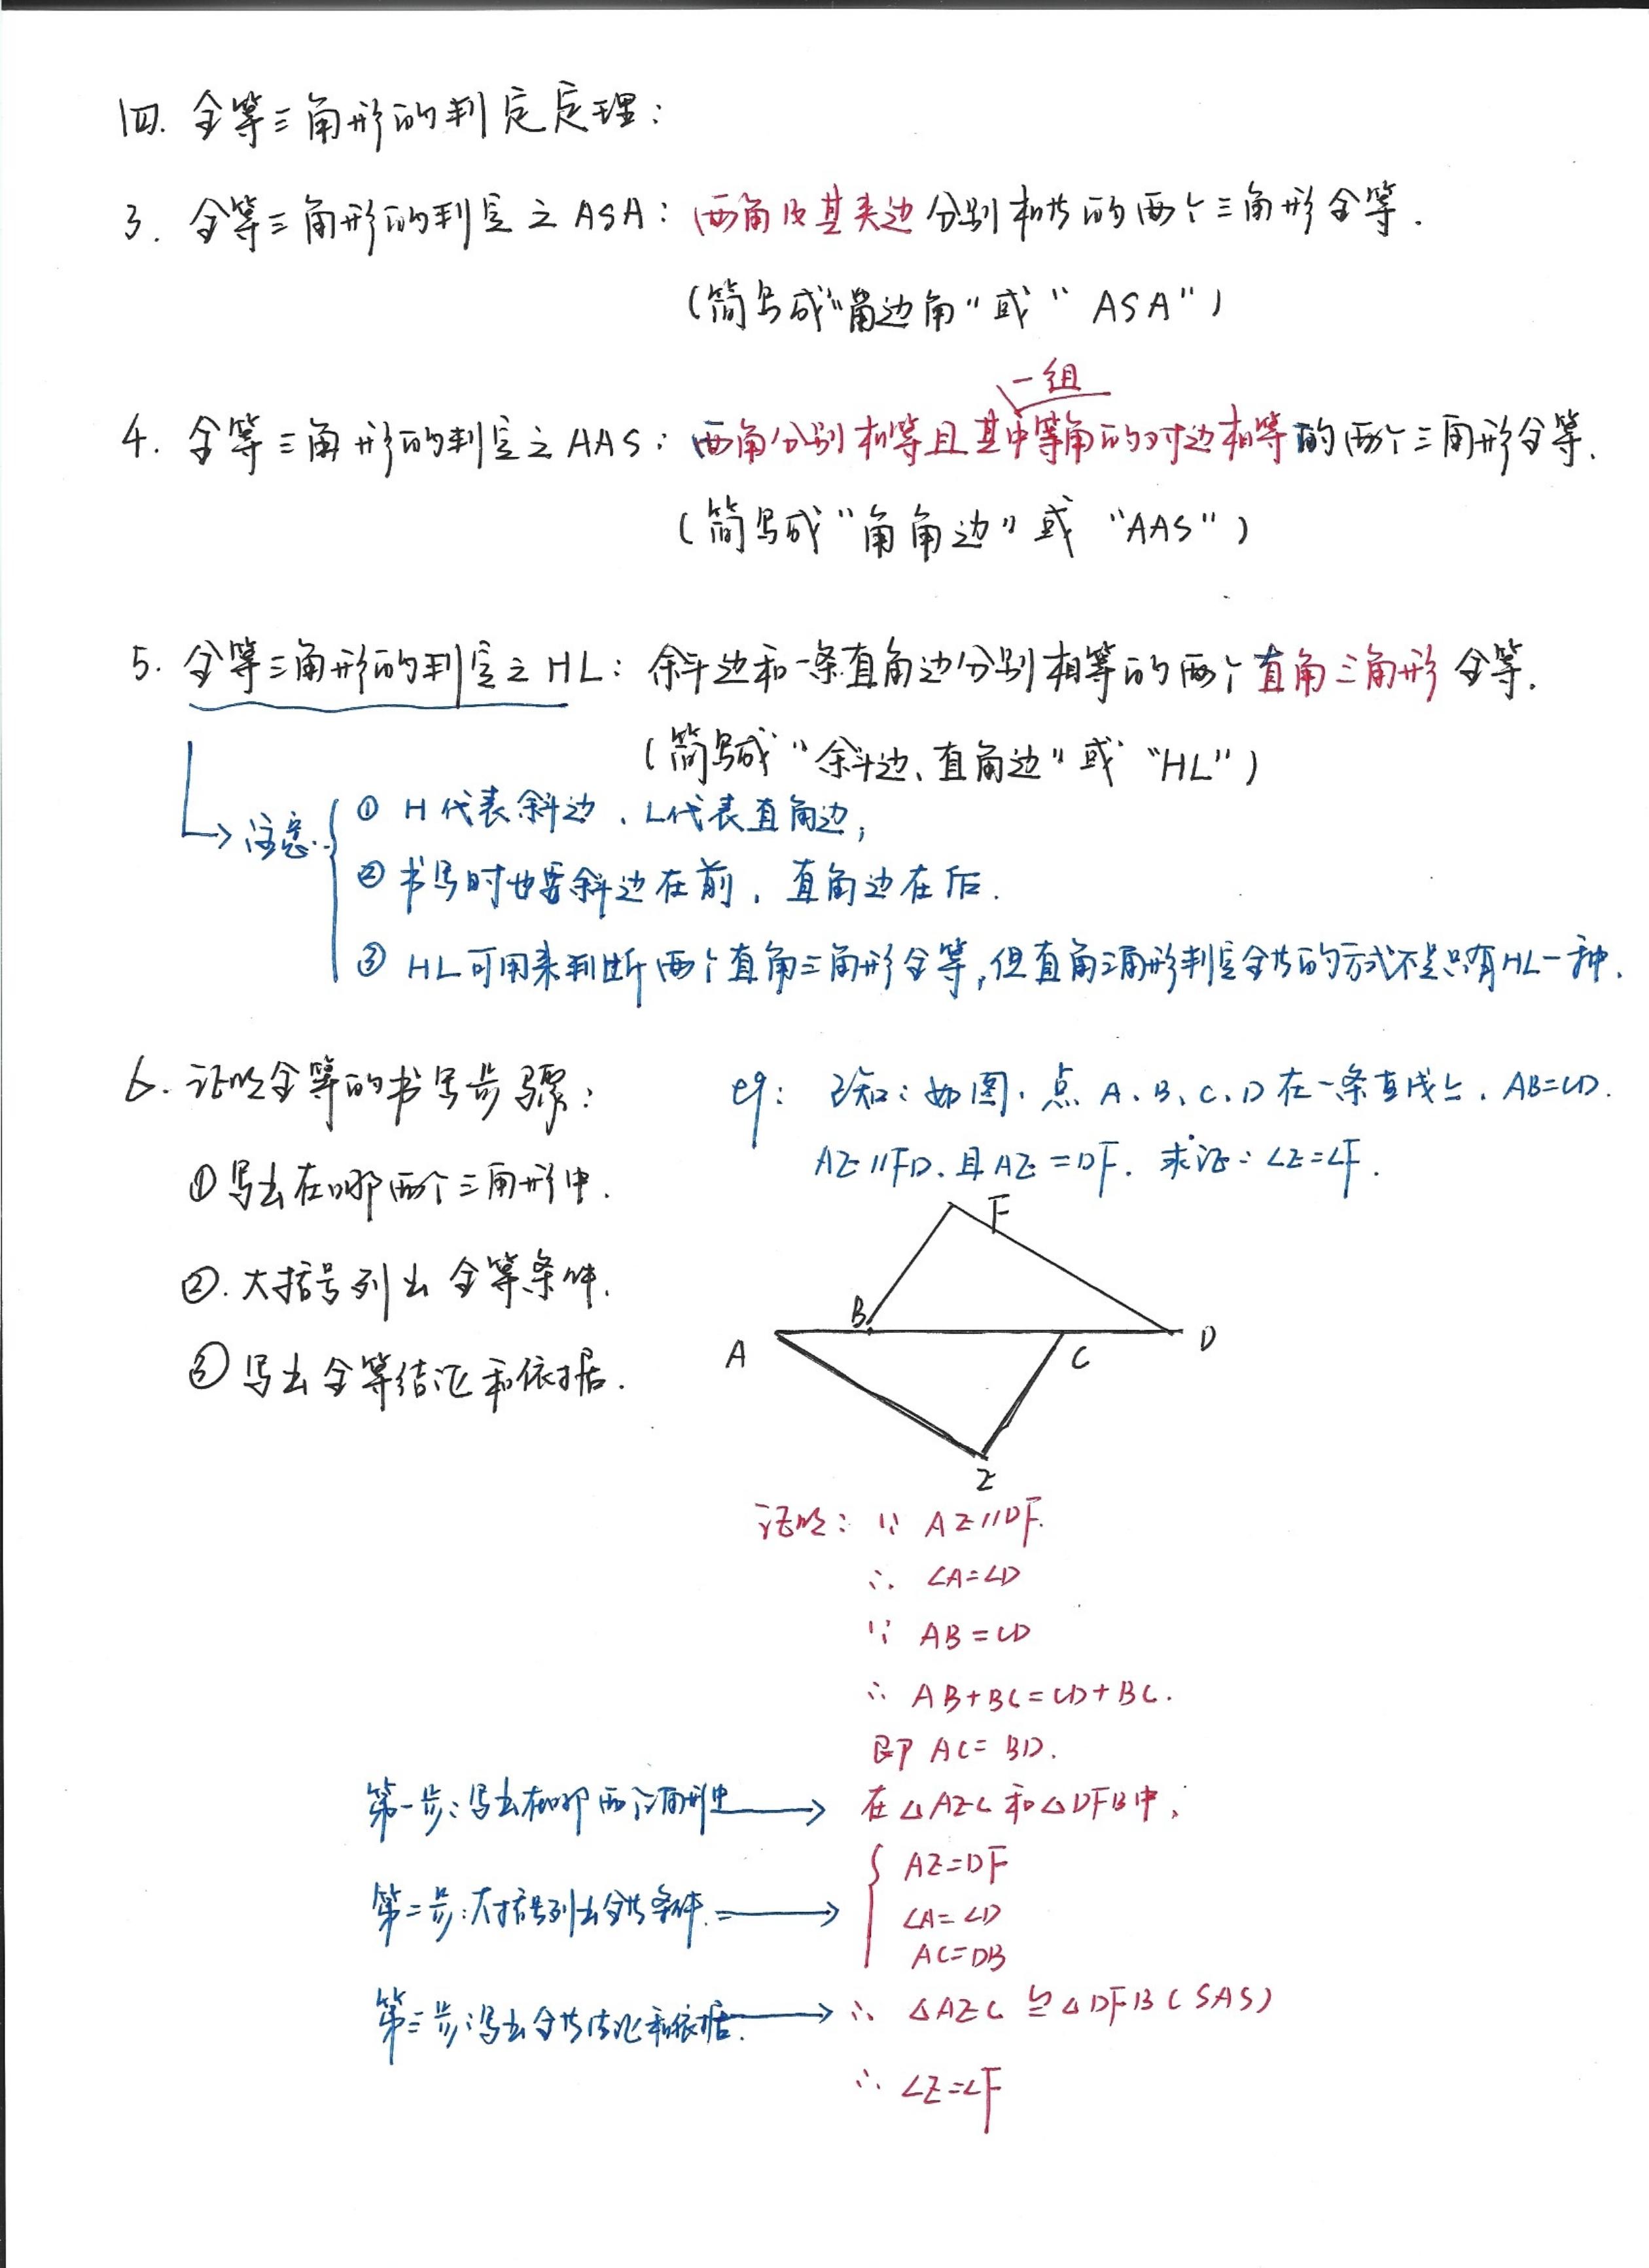 四. 全等三角形的判定定理:
3. 全等三角形的判定之ASA: 两角及其夹边分别相等的两个三角形全等.
(简写成“角边角”或“ASA”)
一组
4. 全等三角形的判定之AAS: 两角分别相等且其中等角的对边相等的两个三角形全等.
(简写成“角角边”或“AAS”)
5. 全等三角形的判定之HL: 斜边和一条直角边分别相等的两个直角三角形全等.
(简写成“斜边、直角边”或“HL”)
注意: ① H代表斜边、L代表直角边;
② 书写时也要斜边在前, 直角边在后.
③ HL可用来判断两个直角三角形全等,但直角三角形判定全等的方式不是只有HL一种.
6. 证明全等的书写步骤:
①写出在哪两个三角形中.
②. 大括号列出全等条件.
③写出全等结论和依据.
eg: 已知: 如图, 点A、B、C、D在一条直线上, AB=CD.
AE∥FD, 且AE=DF. 求证: ∠E=∠F.
F
B
A
C
D
E
证明: ∵ AE∥DF.
∴ ∠A=∠D
∵ AB=CD
∴ AB+BC=CD+BC.
即 AC=BD.
第一步: 写出在哪两个三角形中 → 在△AEC和△DFB中,
AE=DF
第二步: 大括号列出全等条件. → ∠A=∠D
AC=DB
第三步: 写出全等结论和依据. → ∴ △AEC≌△DFB(SAS)
∴ ∠E=∠F